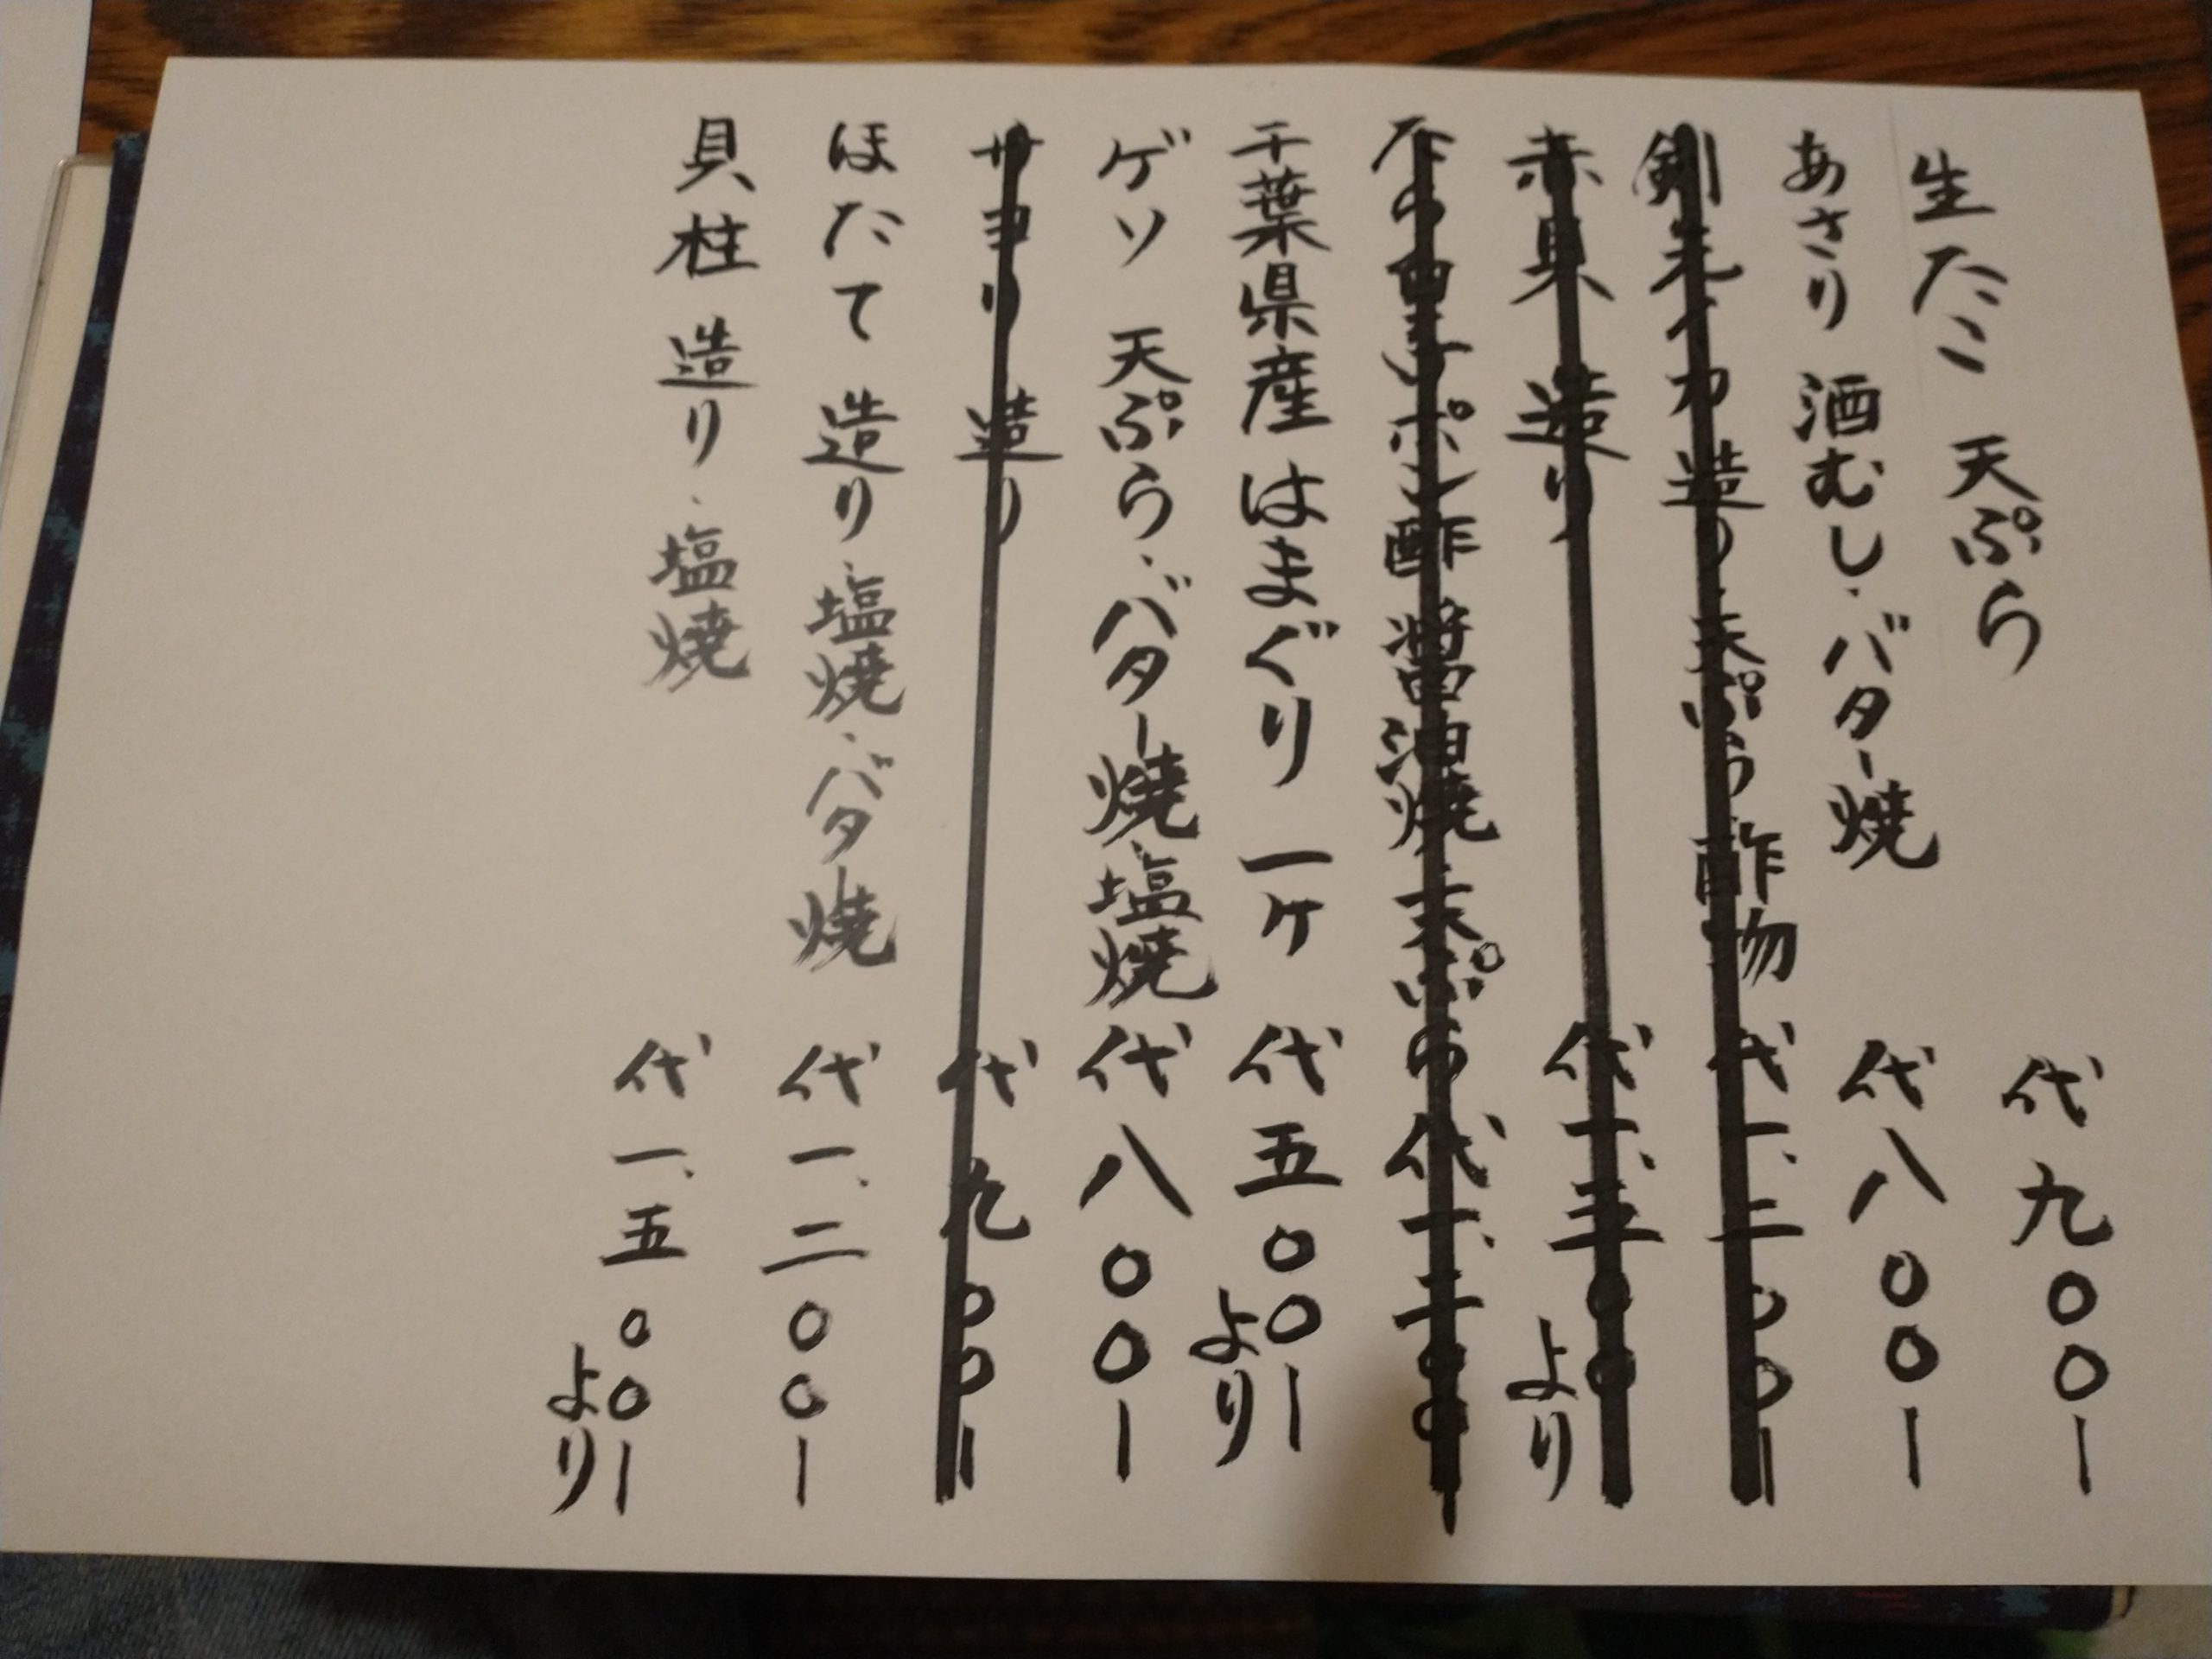 生たこ 天ぷら 代九〇〇ー
あさり 酒むし・バター焼 代八〇〇ー
剣先イカ 造り・天ぷら・酢物 代一、二〇〇ー
赤貝 造り 代一、五〇〇 より
たらの白子ポン酢・醤油焼・天ぷら 代一、二〇〇ー
千葉県産はまぐり 一ヶ 代五〇〇ー より
ゲソ 天ぷら・バター焼・塩焼 代八〇〇ー
サヨリ 造り 代九〇〇ー
ほたて 造り・塩焼・バタ焼 代一、二〇〇ー
貝柱 造り・塩焼 代一、五〇〇ー より